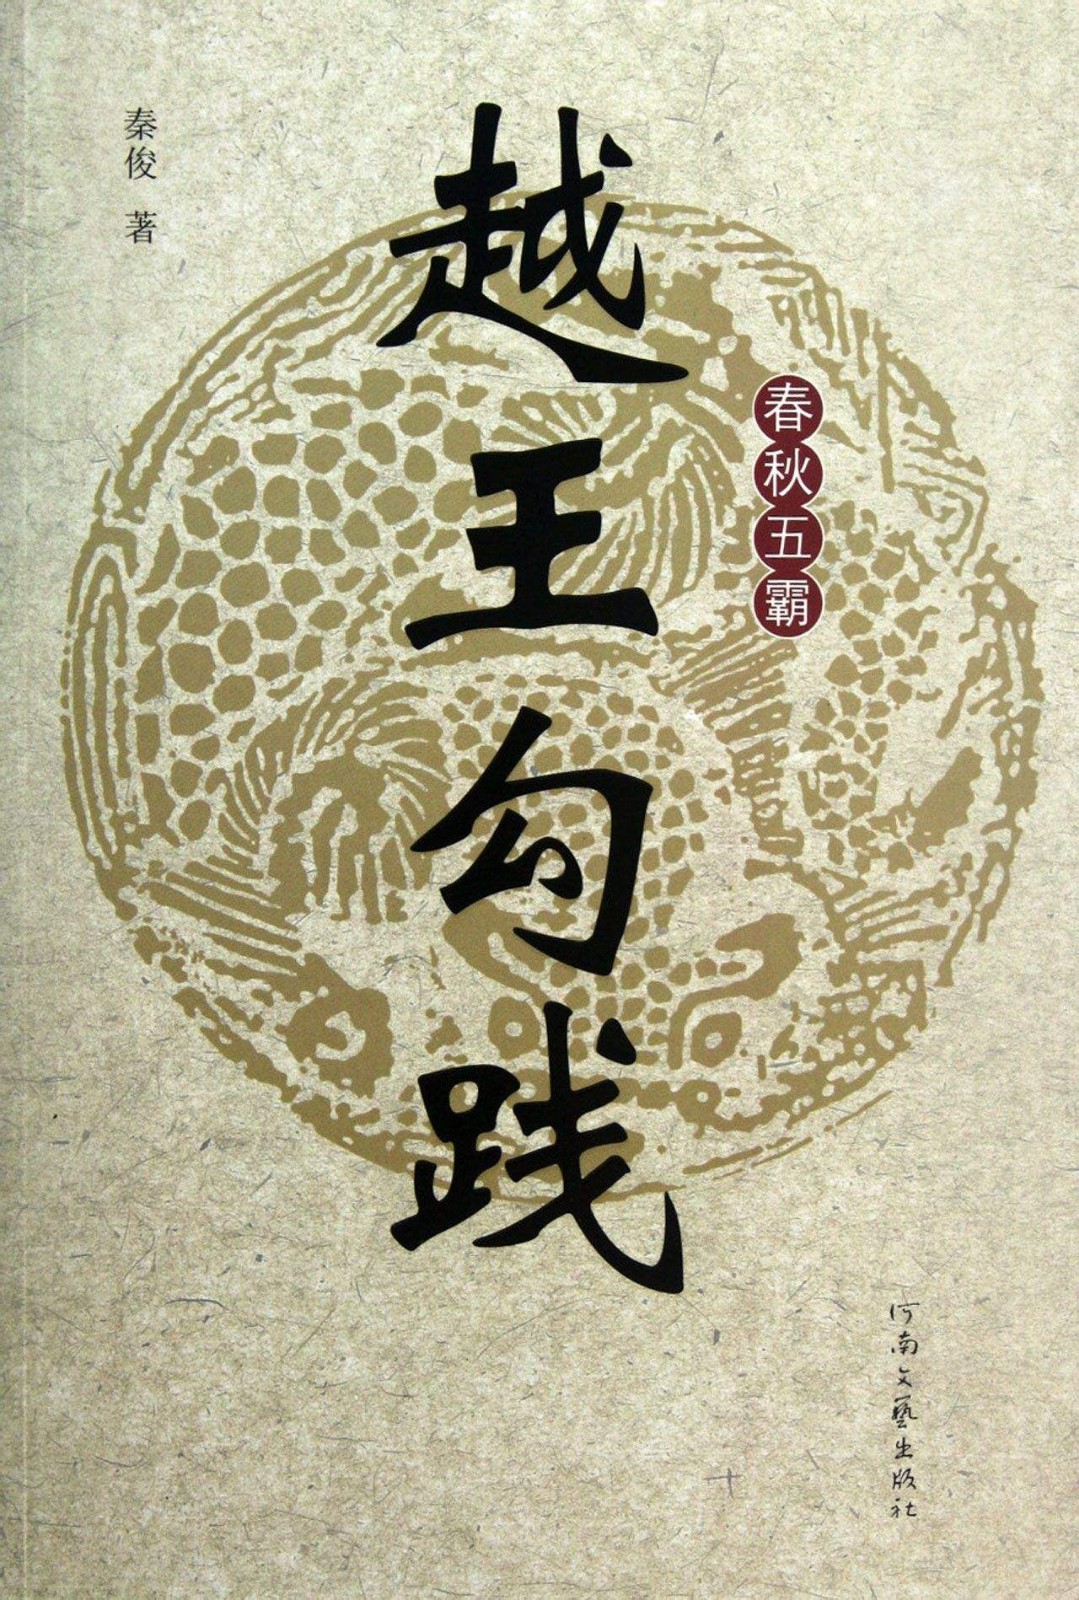 秦俊 著
越王勾践
春秋五霸
河南文藝出版社